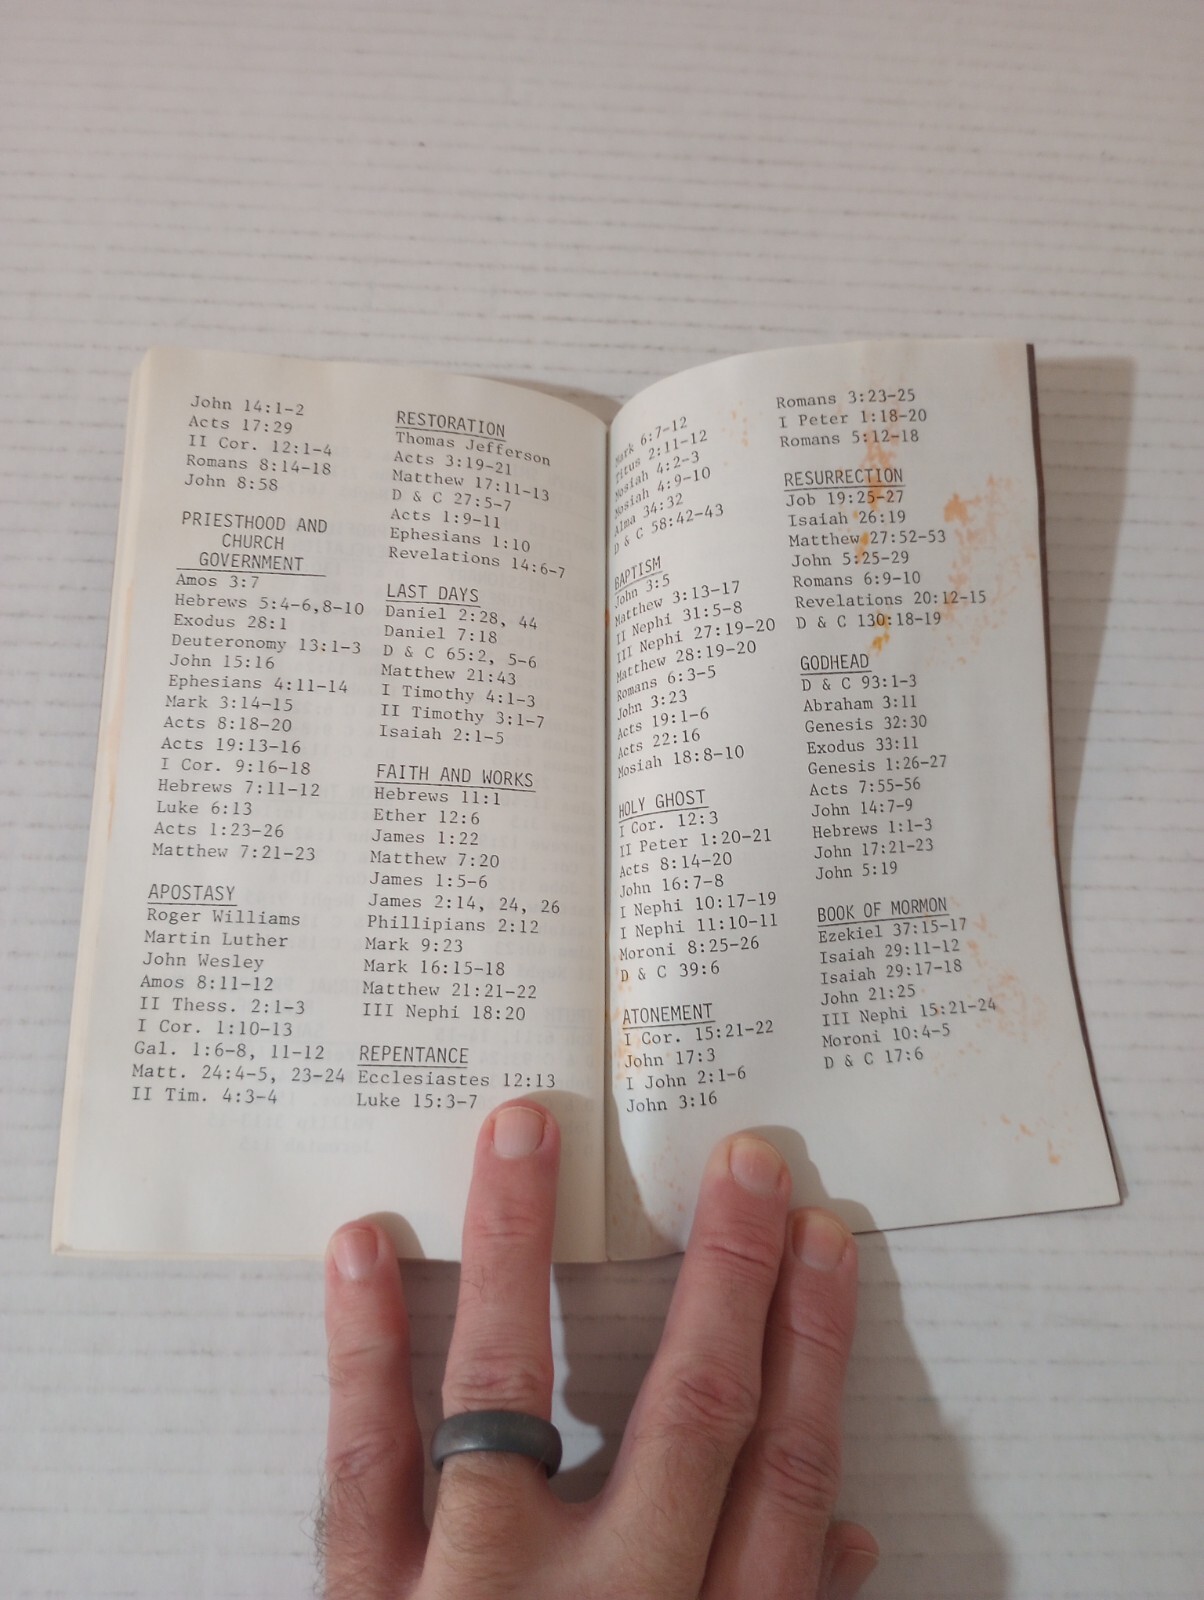 John 14:1-2
Acts 17:29
II Cor. 12:1-4
Romans 8:14-18
John 8:58
PRIESTHOOD AND
CHURCH
GOVERNMENT
Amos 3:7
Hebrews 5:4-6,8-10
Exodus 28:1
Deuteronomy 13:1-3
John 15:16
Ephesians 4:11-14
Mark 3:14-15
Acts 8:18-20
Acts 19:13-16
I Cor. 9:16-18
Hebrews 7:11-12
Luke 6:13
Acts 1:23-26
Matthew 7:21-23
APOSTASY
Roger Williams
Martin Luther
John Wesley
Amos 8:11-12
II Thess. 2:1-3
I Cor. 1:10-13
Gal. 1:6-8, 11-12
Matt. 24:4-5, 23-24
II Tim. 4:3-4
RESTORATION
Thomas Jefferson
Acts 3:19-21
Matthew 17:11-13
D & C 27:5-7
Acts 1:9-11
Ephesians 1:10
Revelations 14:6-7
LAST DAYS
Daniel 2:28, 44
Daniel 7:18
D & C 65:2, 5-6
Matthew 21:43
I Timothy 4:1-3
II Timothy 3:1-7
Isaiah 2:1-5
FAITH AND WORKS
Hebrews 11:1
Ether 12:6
James 1:22
Matthew 7:20
James 1:5-6
James 2:14, 24, 26
Phillipians 2:12
Mark 9:23
Mark 16:15-18
Matthew 21:21-22
III Nephi 18:20
REPENTANCE
Ecclesiastes 12:13
Luke 15:3-7
Mark 6:7-12
Titus 2:11-12
Mosiah 4:2-3
Mosiah 4:9-10
Alma 34:32
D & C 58:42-43
BAPTISM
John 3:5
Matthew 3:13-17
II Nephi 31:5-8
III Nephi 27:19-20
Matthew 28:19-20
Romans 6:3-5
John 3:23
Acts 19:1-6
Acts 22:16
Mosiah 18:8-10
HOLY GHOST
I Cor. 12:3
II Peter 1:20-21
Acts 8:14-20
John 16:7-8
I Nephi 10:17-19
I Nephi 11:10-11
Moroni 8:25-26
D & C 39:6
ATONEMENT
I Cor. 15:21-22
John 17:3
I John 2:1-6
John 3:16
Romans 3:23-25
I Peter 1:18-20
Romans 5:12-18
RESURRECTION
Job 19:25-27
Isaiah 26:19
Matthew 27:52-53
John 5:25-29
Romans 6:9-10
Revelations 20:12-15
D & C 130:18-19
GODHEAD
D & C 93:1-3
Abraham 3:11
Genesis 32:30
Exodus 33:11
Genesis 1:26-27
Acts 7:55-56
John 14:7-9
Hebrews 1:1-3
John 17:21-23
John 5:19
BOOK OF MORMON
Ezekiel 37:15-17
Isaiah 29:11-12
Isaiah 29:17-18
John 21:25
III Nephi 15:21-24
Moroni 10:4-5
D & C 17:6